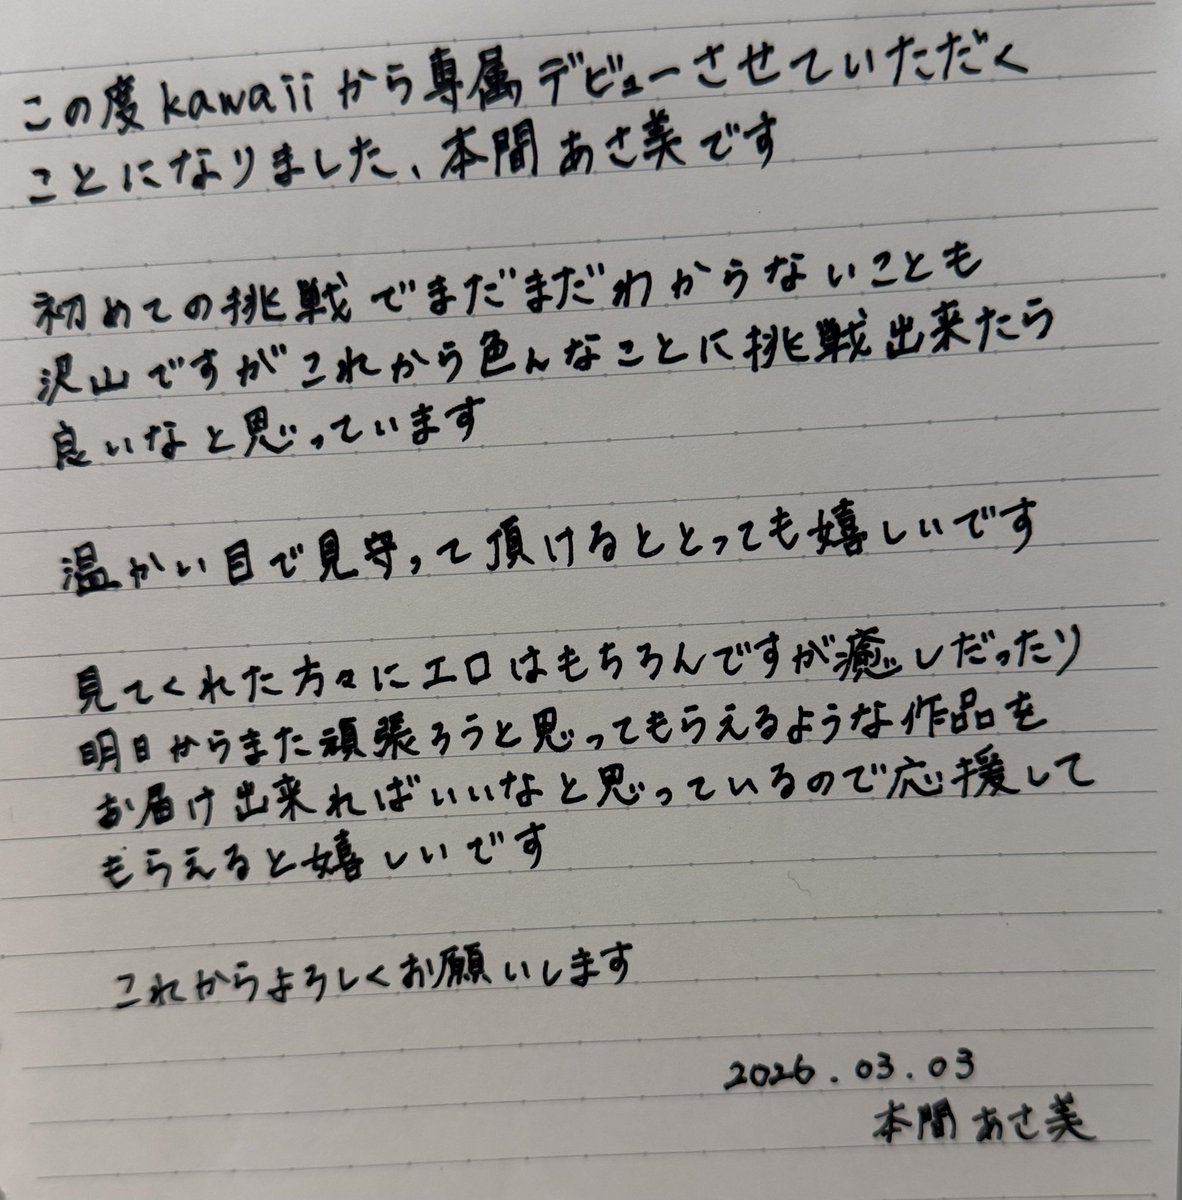 この度kawaiiから専属デビューさせていただく
ことになりました、本間あさ美です
初めての挑戦でまだまだわからないことも
沢山ですがこれから色んなことに挑戦出来たら
良いなと思っています
温かい目で見守って頂けるととっても嬉しいです
見てくれた方々にエロはもちろんですが癒しだったり
明日からまた頑張ろうと思ってもらえるような作品を
お届け出来ればいいなと思っているので応援して
もらえると嬉しいです
これからよろしくお願いします
2026.03.03
本間あさ美